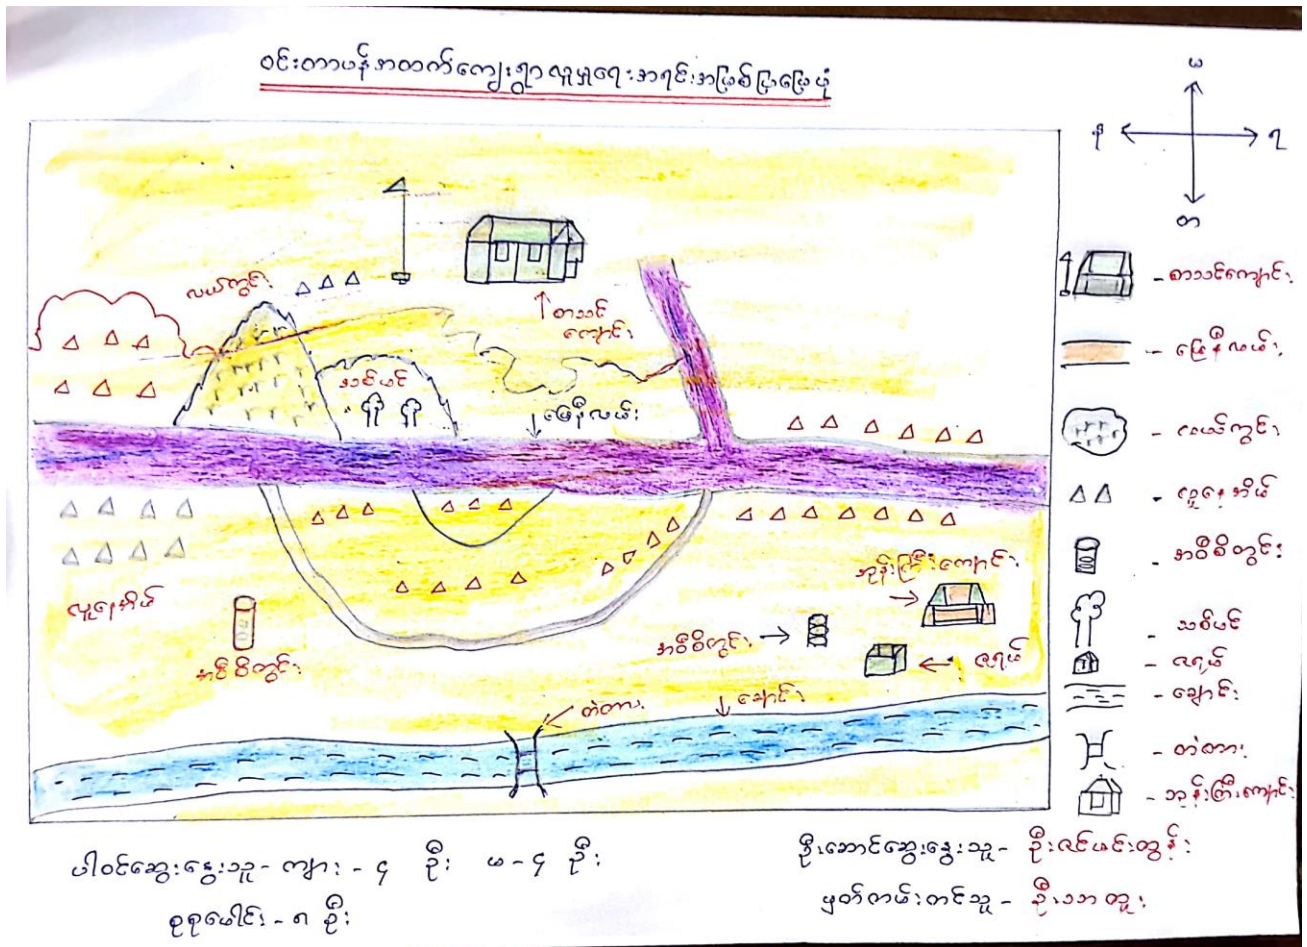 ဝင်းတာပန်အထက်ကျေးရွာလူမှုရေးအရင်းအမြစ်ပြမြေပုံ
မ
န
ရ
တ
လယ်ကွင်း
စာသင်
ကျောင်း
သစ်ပင်
မြေနီလမ်း
လူနေအိမ်
အဝီစိတွင်း
ဘုန်းကြီးကျောင်း
အဝီစိတွင်း
ဇရပ်
တံတား
ချောင်း
- စာသင်ကျောင်း
- မြေနီလမ်း
- လယ်ကွင်း
- လူနေအိမ်
- အဝီစိတွင်း
- သစ်ပင်
- ဇရပ်
- ချောင်း
- တံတား
- ဘုန်းကြီးကျောင်း
ပါဝင်ဆွေးနွေးသူ - ကျား - ၄ ဦး မ - ၄ ဦး
စုစုပေါင်း - ၈ ဦး
ဦးဆောင်ဆွေးနွေးသူ - ဦးဇင်မင်းထွန်း
မှတ်တမ်းတင်သူ -